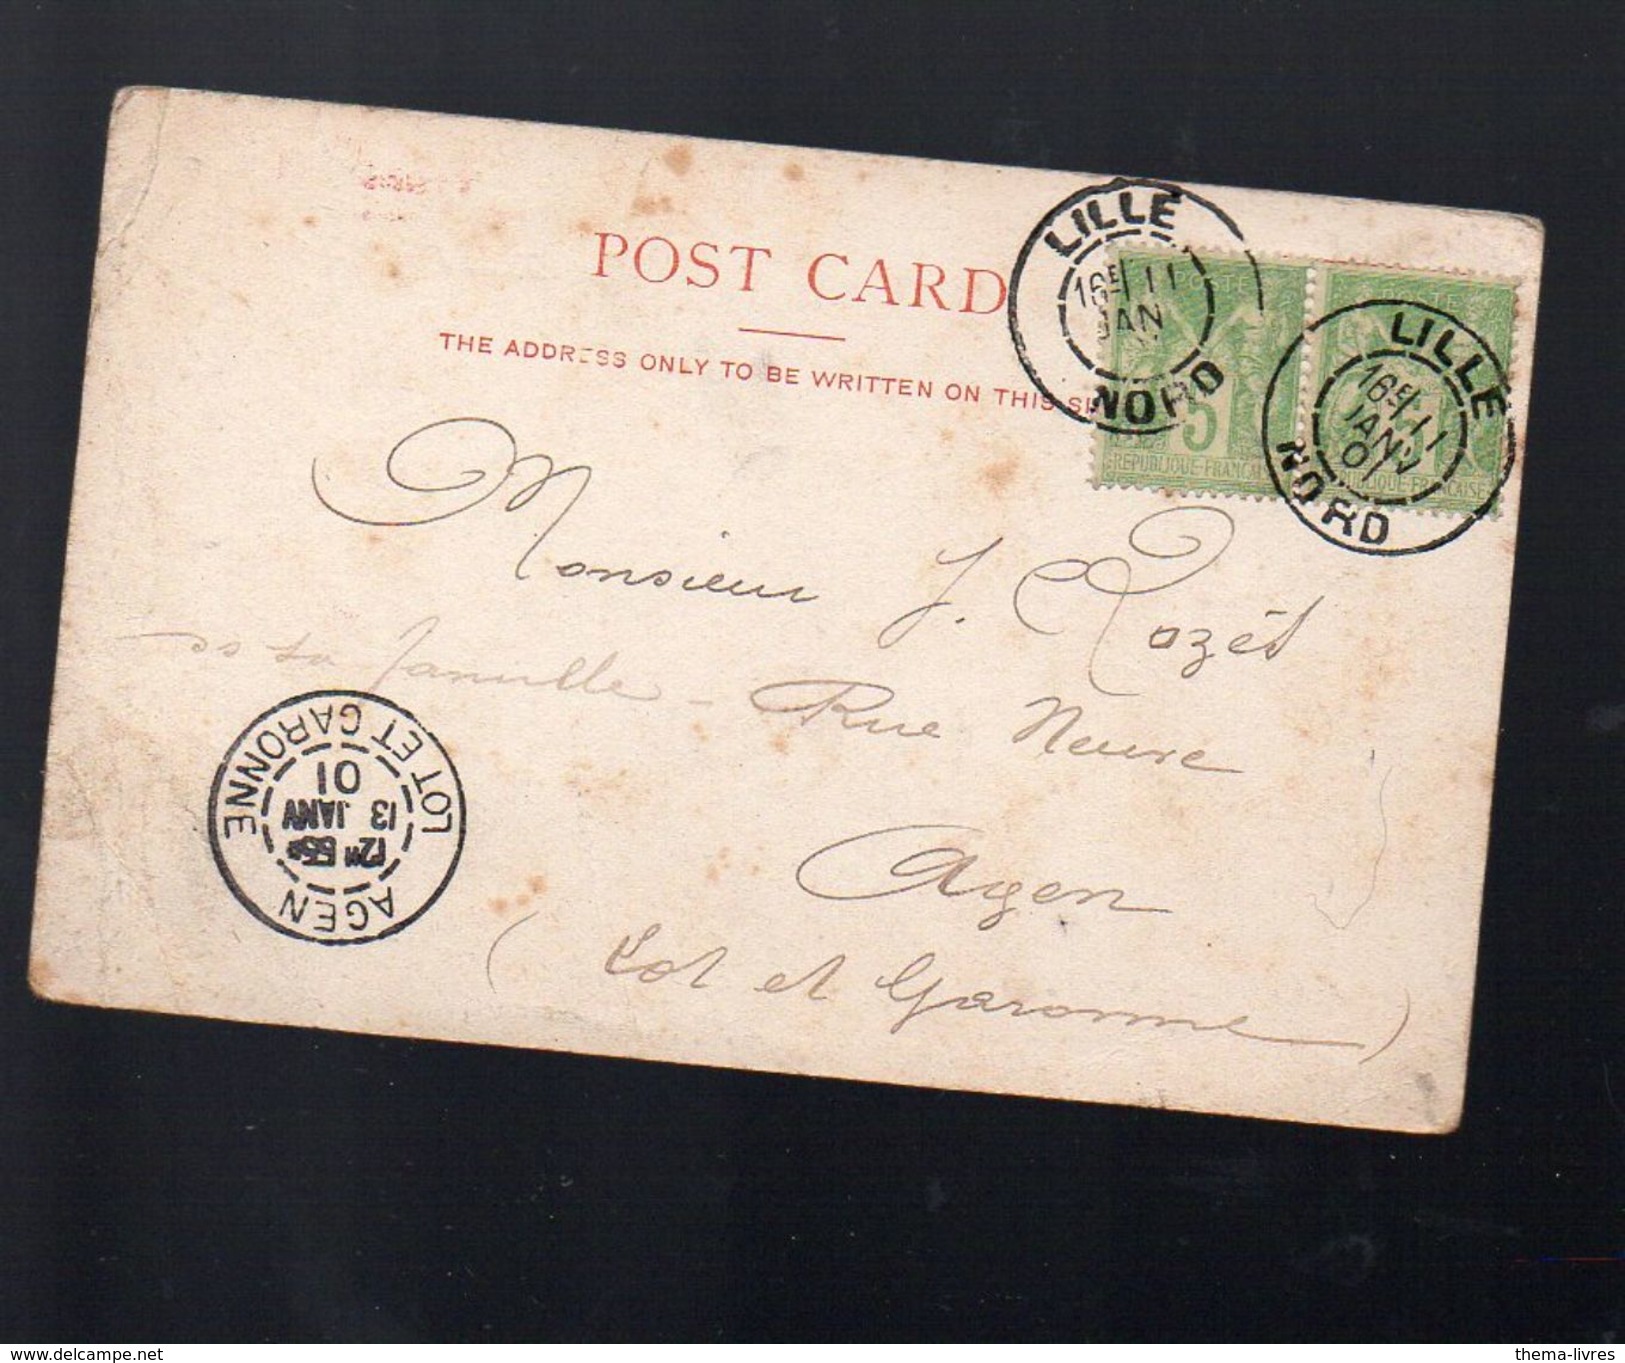 POST CARD
THE ADDRESS ONLY TO BE WRITTEN ON THIS SI
LILLE
16E 11
JAN
NORD
LILLE
16E 11
JANV
01
NORD
POSTE
5
REPUBLIQUE FRANCAI
POSTE
REPUBLIQUE FRANCAISE
Monsieur J. Rozès
Rue Neuve
Agen
(Lot et Garonne)
AGEN
12H 55
13 JANV
01
LOT ET GARONNE
www.delcampe.net
thema-livres